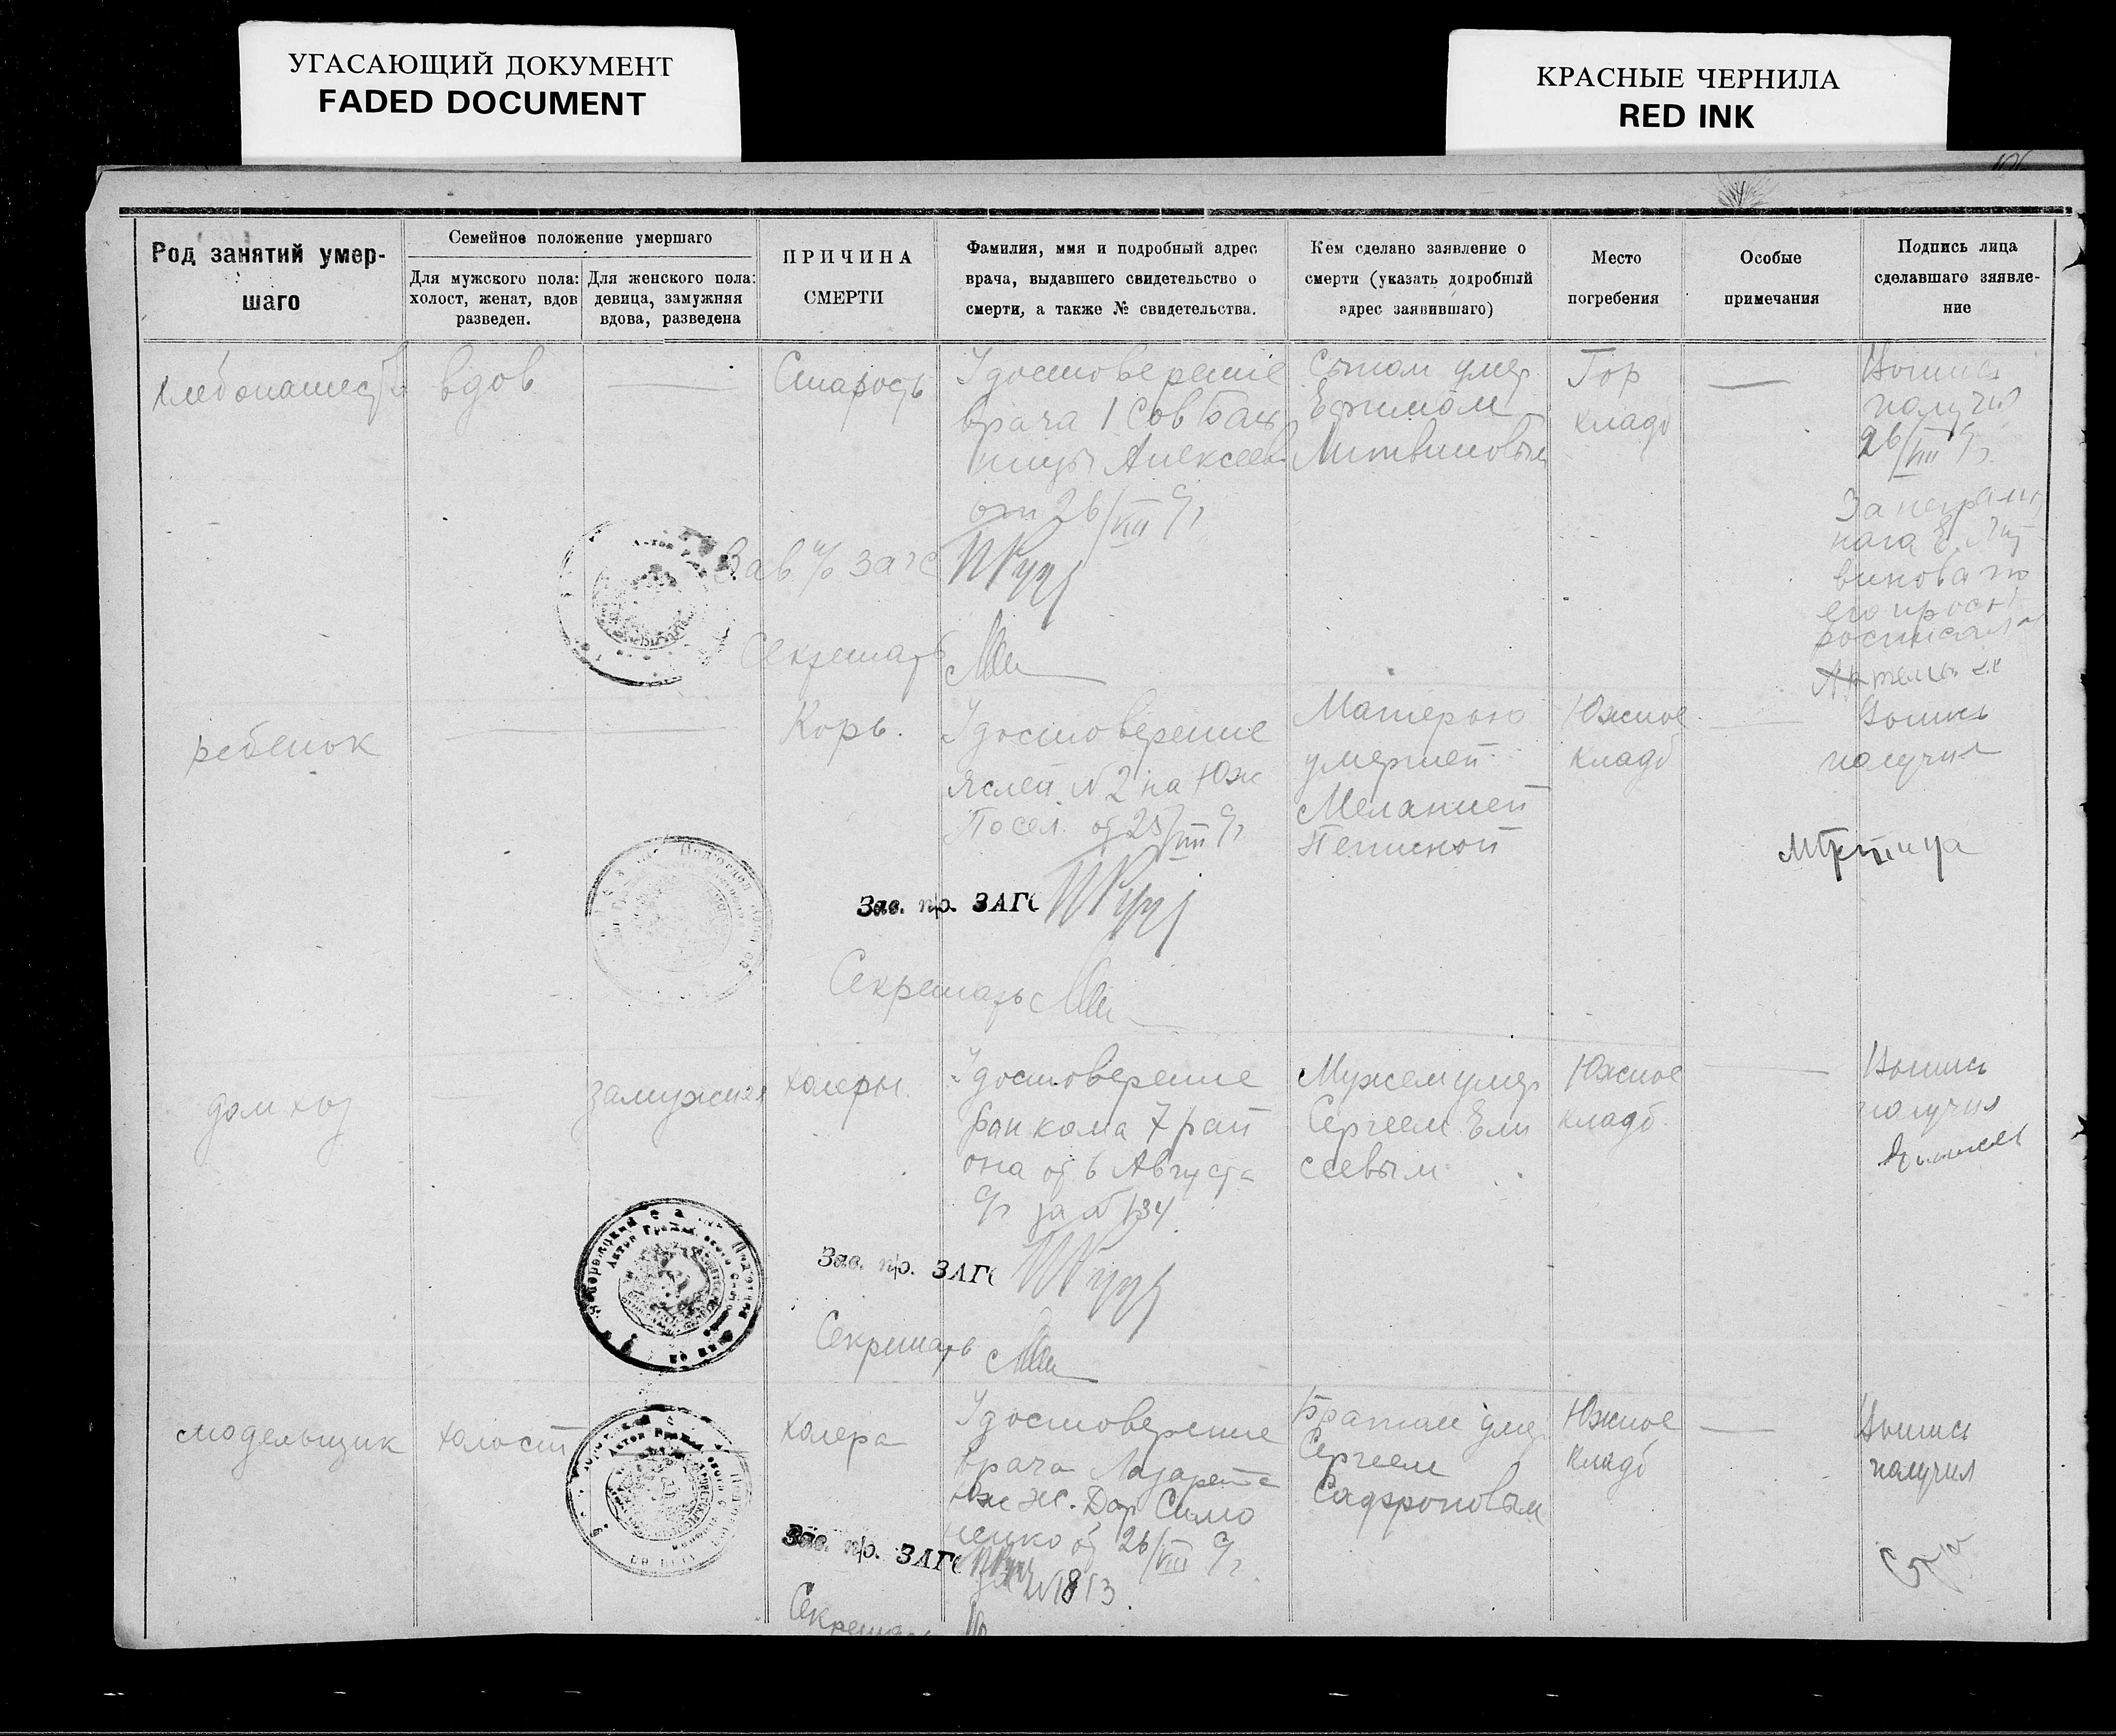 УГАСАЮЩИЙ ДОКУМЕНТ
FADED DOCUMENT
КРАСНЫЕ ЧЕРНИЛА
RED INK
Род занятий умер-
шаго
Семейное положение умершаго
Для мужского пола:
холост, женат, вдов
разведен.
Для женского пола:
девица, замужняя
вдова, разведена
ПРИЧИНА
СМЕРТИ
Фамилия, ммя и подробный адрес
врача, выдавшего свидетельство о
смерти, а также № свидетельства.
Кем сделано заявление о
смерти (указать додробный
адрес заявившаго)
Место
погребения
Особые
примечания
Подпись лица
сделавшаго зяявле-
ние
хлебопашество
вдов
Старость
Удостоверение
врача 1 Сов Бол
ницы Алексеев
от 26/VIII 9г
Сыном умер
Ефимом
Литвиновым
Гор
кладб
Выпись
получил
26/VIII 9г.
За неграмот
наго Е. Лит
винова по
его прось
росписался
Зав. п/о загс
Секретарь
ребенок
Корь.
Удостоверение
яслей N2 на Юж
Посел. от 25/VIII 9г
Матерью
умершей
Меланией
Южное
кладб
Выпись
получил
Зав. п/о. ЗАГС
Секретарь
дом хоз
замужняя
холеры.
Удостоверение
рай кома 7 рай
она от 6 Августа
9г за N 134
Мужем умер
Сергеем Ели
сеевым
Южное
кладб.
Выпись
получил
Зав. п/о. ЗАГС
Секретарь
модельщик
холост
холера
Удостоверение
врача Лазарета
Юж ж. Дор Симо
ненко от 26/VIII 9г.
за N1813.
Братом умер
Сергеем
Сафроновым
Южное
кладб
Выпись
получил
Зав. п/о. ЗАГС
Секретарь